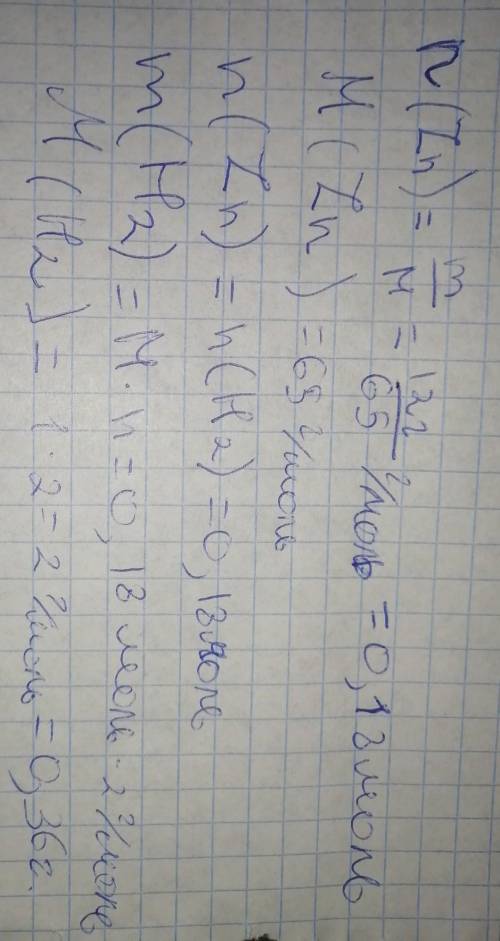 n(Zn) = m/M = 12г/65 г/моль = 0,18 моль
M(Zn) = 65 г/моль
n(Zn) = n(H2) = 0,18 моль
m(H2) = M · n = 0,18 моль · 2 г/моль
M(H2) = 1 · 2 = 2 г/моль = 0,36 г.